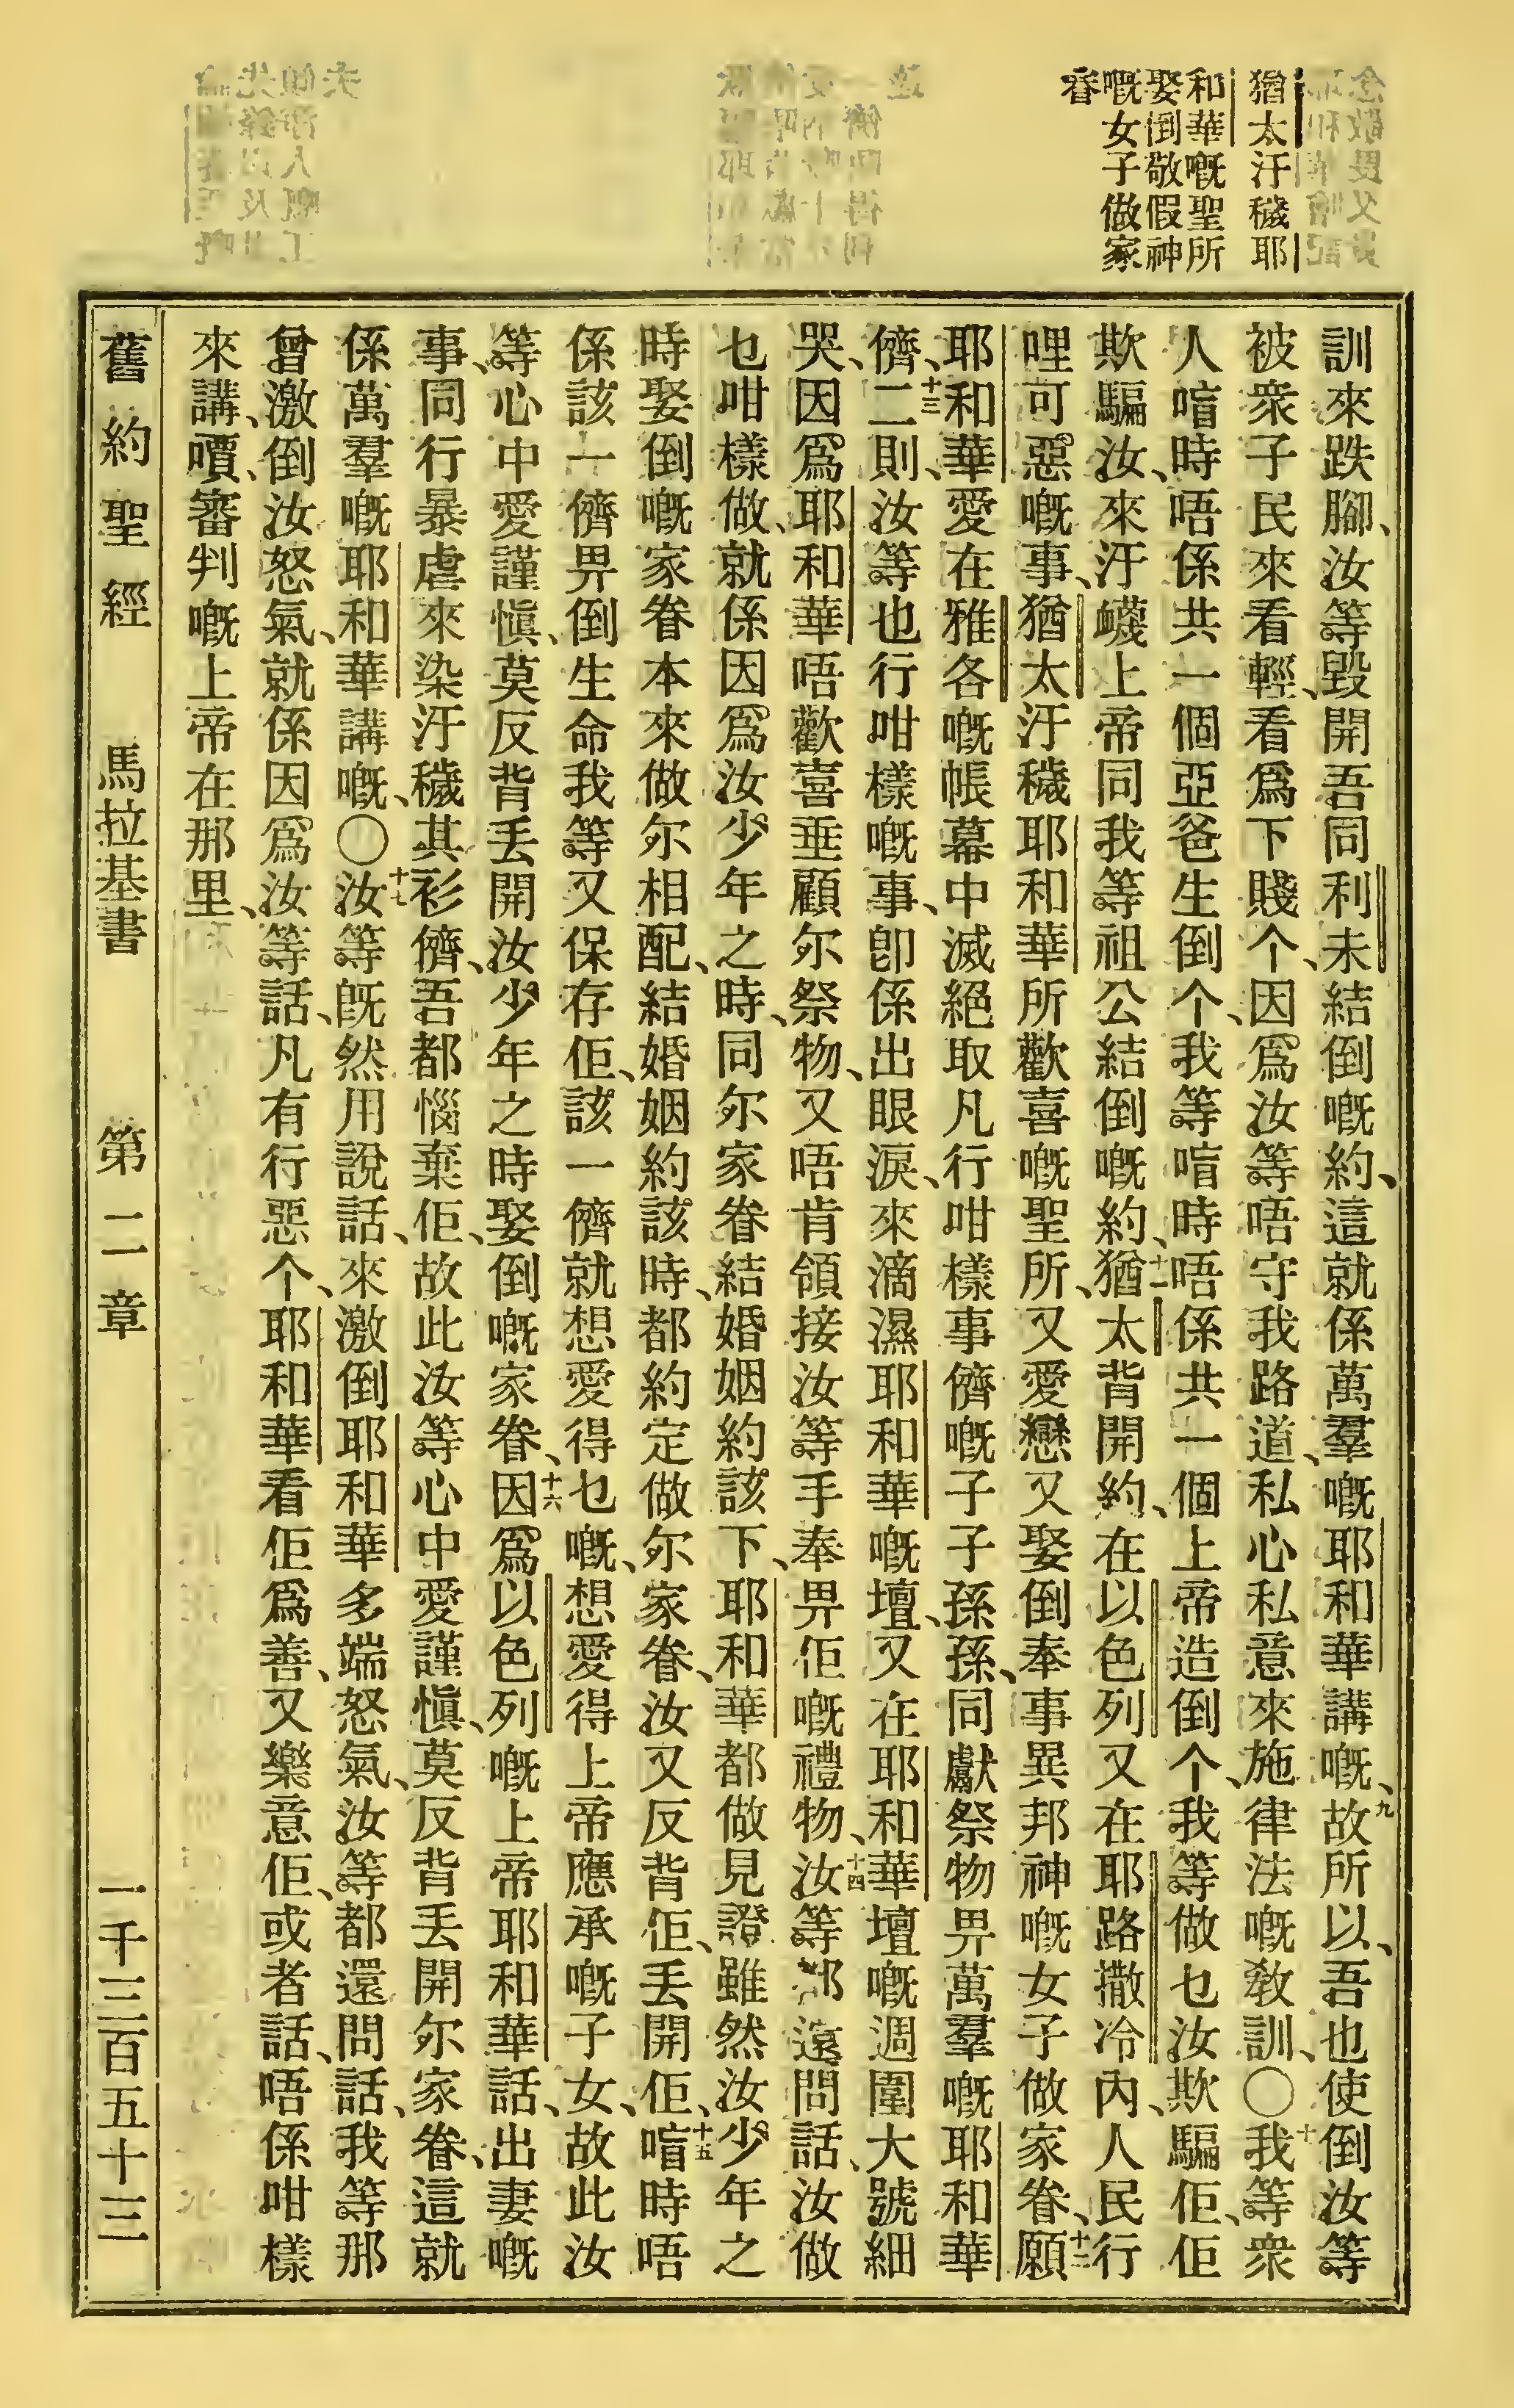 猶太汙穢耶
和華嘅聖所
娶倒敬假神
嘅女子做家
眷
訓來跌腳、汝等毀開吾同利未結倒嘅約、這就係萬羣嘅耶和華講嘅、九故所以、吾也使倒汝等
被衆子民來看輕、看爲下賤个、因爲汝等唔守我路道、私心私意來施律法嘅敎訓、〇十我等衆
人喑時唔係共一個亞爸生倒个、我等喑時唔係共一個上帝造倒个、我等做乜汝欺騙佢、佢
欺騙汝、來汙衊上帝同我等祖公結倒嘅約、十一猶太背開約、在以色列又在耶路撒冷內、人民行
哩可惡嘅事、猶太汙穢耶和華所歡喜嘅聖所、又愛戀又娶倒奉事異邦神嘅女子做家眷、十二願
耶和華愛在雅各嘅帳幕中滅絕取凡行咁樣事儕嘅子子孫孫、同獻祭物畀萬羣嘅耶和華
儕、十三二則、汝等也行咁樣嘅事、卽係出眼淚、來滴濕耶和華嘅壇、又在耶和華壇嘅週圍大號細
哭、因爲耶和華唔歡喜垂顧尔祭物、又唔肯領接汝等手奉畀佢嘅禮物、十四汝等都還問話、汝做
乜咁樣做、就係因爲汝少年之時、同尔家眷結婚姻約該下、耶和華都做見證、雖然汝少年之
時娶倒嘅家眷本來做尔相配、結婚姻約該時、都約定做尔家眷、汝又反背佢、丟開佢、十五喑時唔
係該一儕畀倒生命我等又保存佢、該一儕就想愛得乜嘅、想愛得上帝應承嘅子女、故此汝
等心中愛謹愼、莫反背丟開汝少年之時娶倒嘅家眷、十六因爲以色列嘅上帝耶和華話、出妻嘅
事、同行暴虐來染汙穢其衫儕、吾都惱棄佢、故此汝等心中愛謹愼、莫反背丟開尔家眷、這就
係萬羣嘅耶和華講嘅、〇十七汝等旣然用說話、來激倒耶和華多端怒氣、汝等都還問話、我等那
曾激倒汝怒氣、就係因爲汝等話、凡有行惡个、耶和華看佢爲善、又樂意佢、或者話、唔係咁樣
來講、嘳、審判嘅上帝在那里、
舊約聖經 馬拉基書 第二章 一千三百五十三